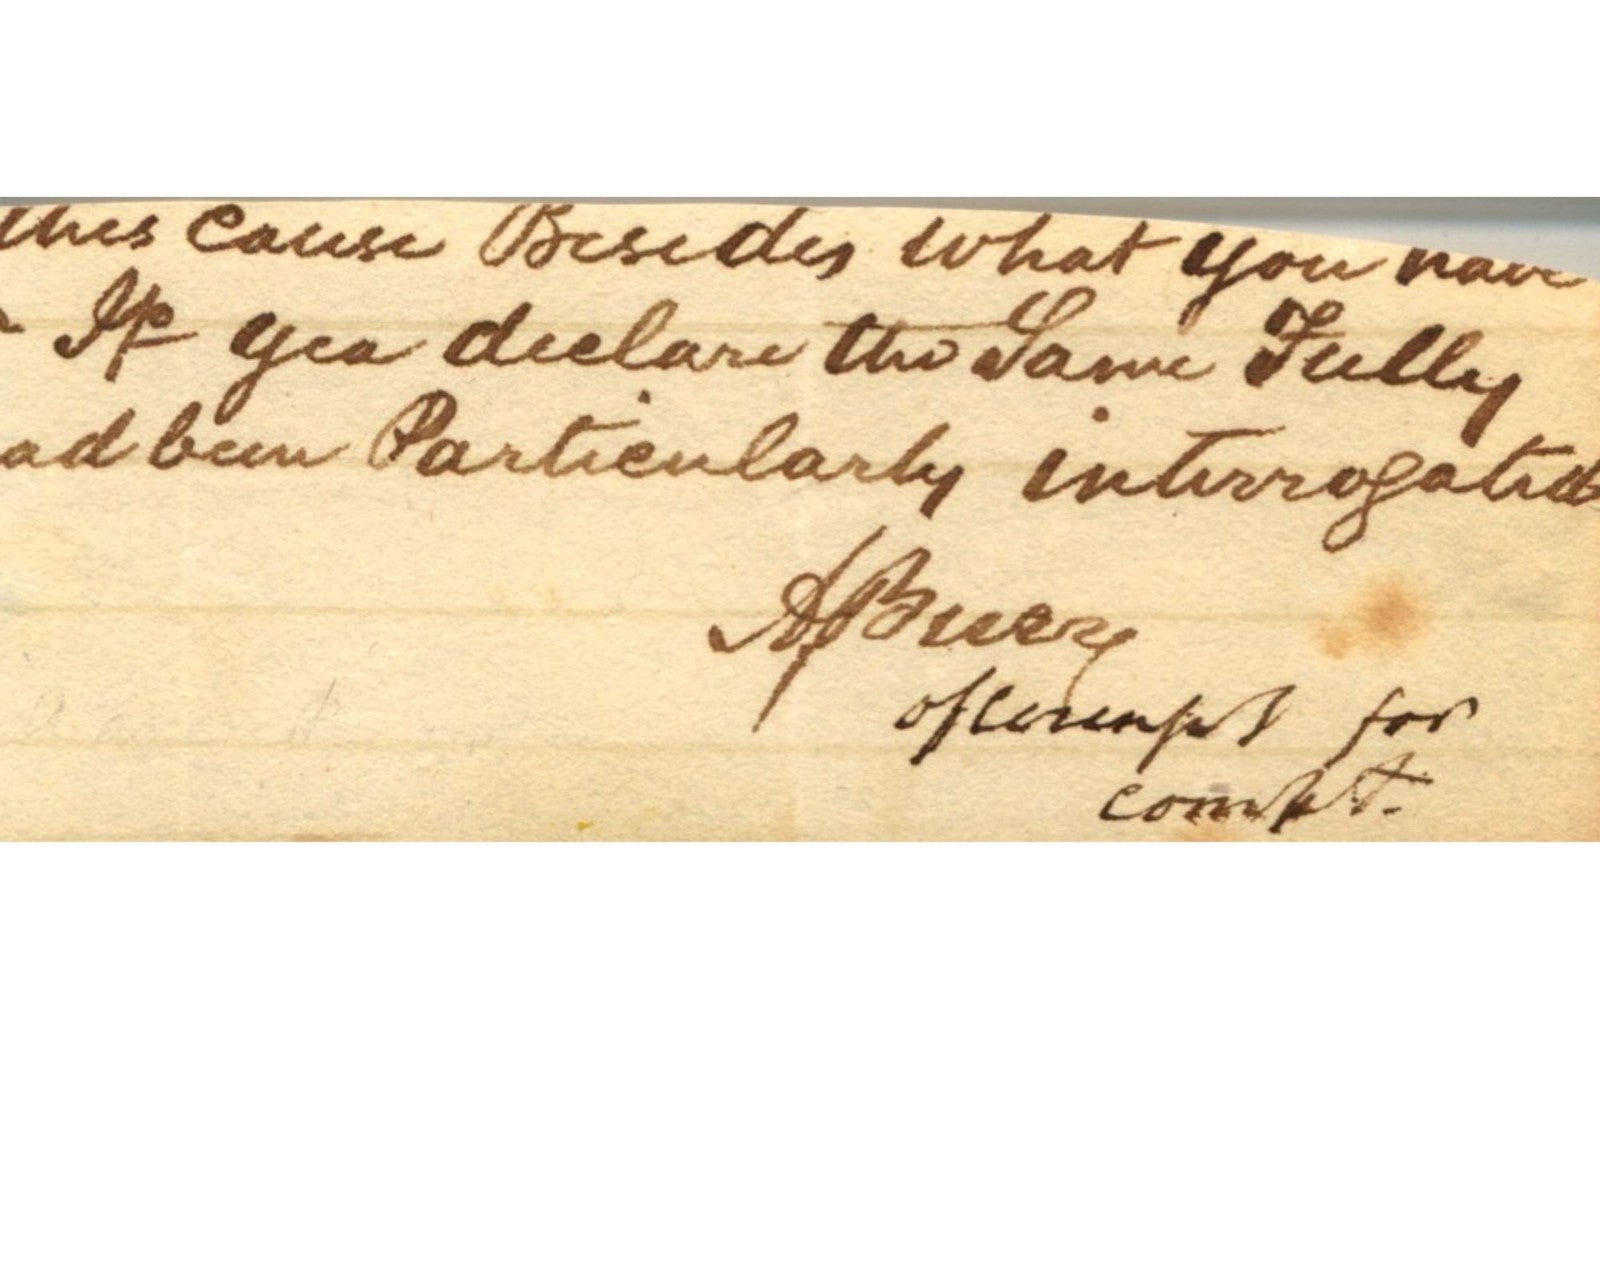 this Cause Besides what you have
If yea declare the Same Fully
ad been Particularly interrogated
A Burr
of Counsel for
complt.